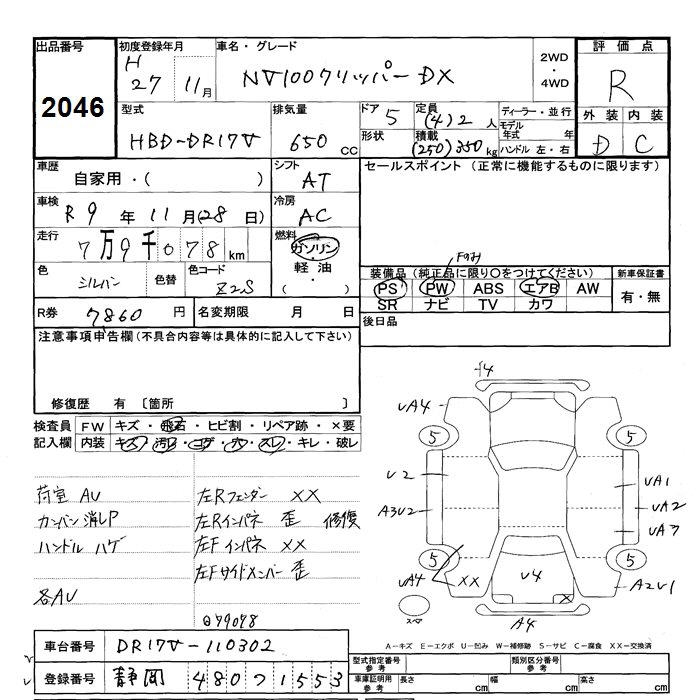 出品番号
2046
初度登録年月
H 27 11月
車名・グレード
NV100クリッパー DX
2WD ・ 4WD
評価点
R
外装 内装
D C
型式
HBD-DR17V
排気量
650 CC
ドア 5
形状
定員 (4) 2 人
積載 (250) 350 kg
ディーラー・並行
モデル年式 年
ハンドル 左・右
車歴
自家用・( )
シフト
AT
車検
R 9 年 11 月(28 日)
冷房
AC
走行
7万9千078 km
燃料
ガソリン
・
軽油
・
( )
色
シルバー
色替
色コード
Z2S
R券 7860 円
名変期限 月 日
セールスポイント (正常に機能するものに限ります)
Fのみ
装備品 (純正品に限り○をつけてください)
PS PW ABS エアB AW
SR ナビ TV カワ
新車保証書
有・無
後日品
注意事項申告欄 (不具合内容等は具体的に記入して下さい)
修復歴 有 〔箇所 〕
検査員記入欄
FW キズ・飛石・ヒビ割・リペア跡・×要
内装 キズ・汚レ・コゲ・穴・スレ・キレ・破レ
荷室 AU
カンバン消しP
ハンドル ハゲ
各AU
左Rフェンダー XX
左Rインパネ 歪 修復
左Fインパネ XX
左Fサイドメンバー 歪
79078
車台番号 DR17V-110302
登録番号 静岡 480 7 1553
A4
UA4
5
5
U2
A3U2
UA1
UA2
UA7
5
5
UA4
XX
U4
X
A2U1
A4
スペア
A-キズ E-エクボ U-凹み W-補修跡 S-サビ C-腐食 XX-交換済
型式指定番号 参考
類別区分番号 参考
車庫証明用 参考
長さ cm
幅 cm
高さ cm